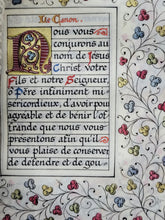 Le Canon.
Nous vous
conjurons au
nom de Jésus
Christ votre
Fils et notre Seigneur,
Père infiniment mi
séricordieux, d'avoir pour
agréable et de bénir l'of
frande que nous vous
présentons afin qu'il
vous plaise de conserver
de défendre et de gou.